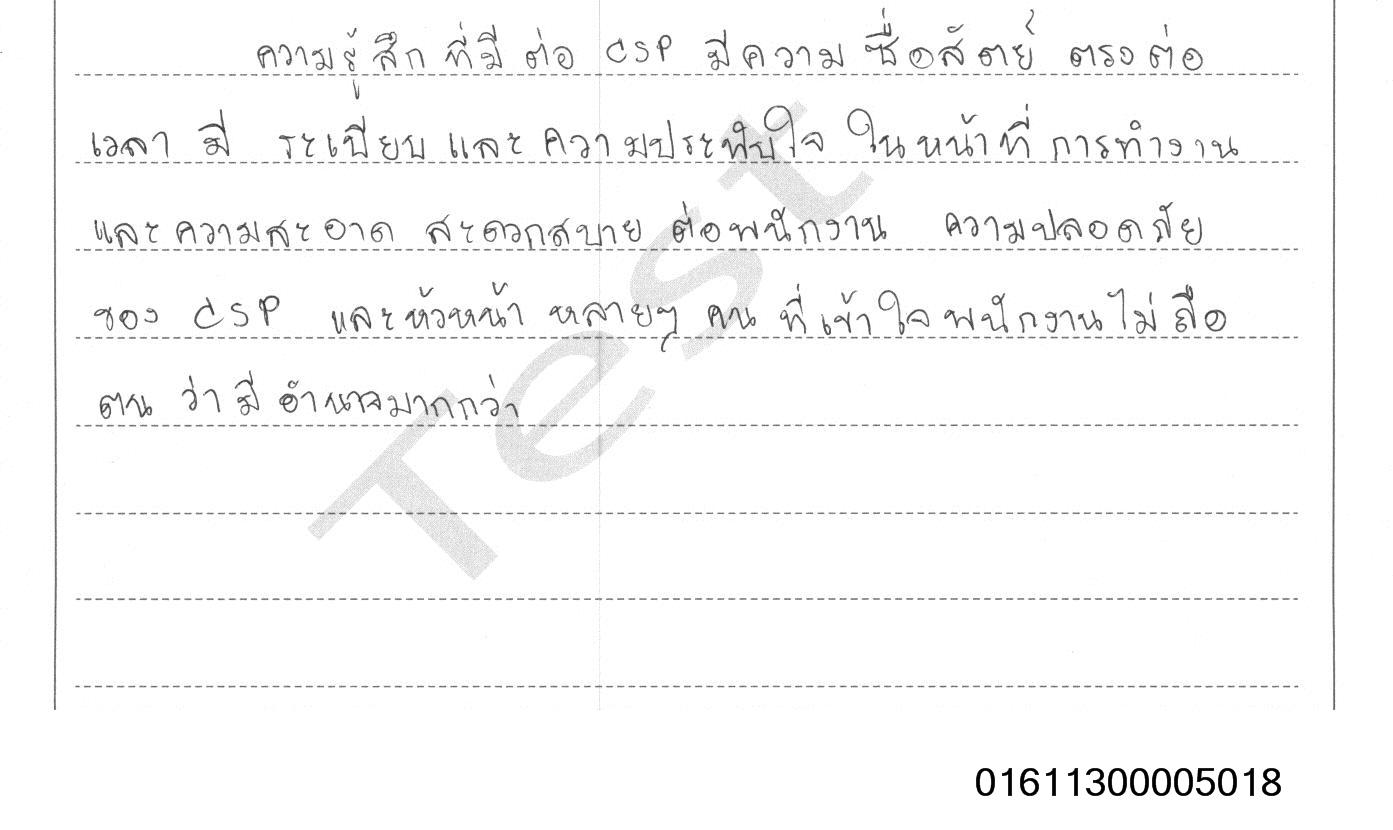 ความรู้สึกที่มีต่อ CSP มีความซื่อสัตย์ ตรงต่อ
เวลา มี ระเบียบและความประทับใจ ในหน้าที่การทำงาน
และความสะอาด สะดวกสบาย ต่อพนักงาน ความปลอดภัย
ของ CSP และหัวหน้า หลายๆ คน ที่เข้าใจพนักงานไม่ถือ
ตน ว่ามี อำนาจมากกว่า
Test
01611300005018